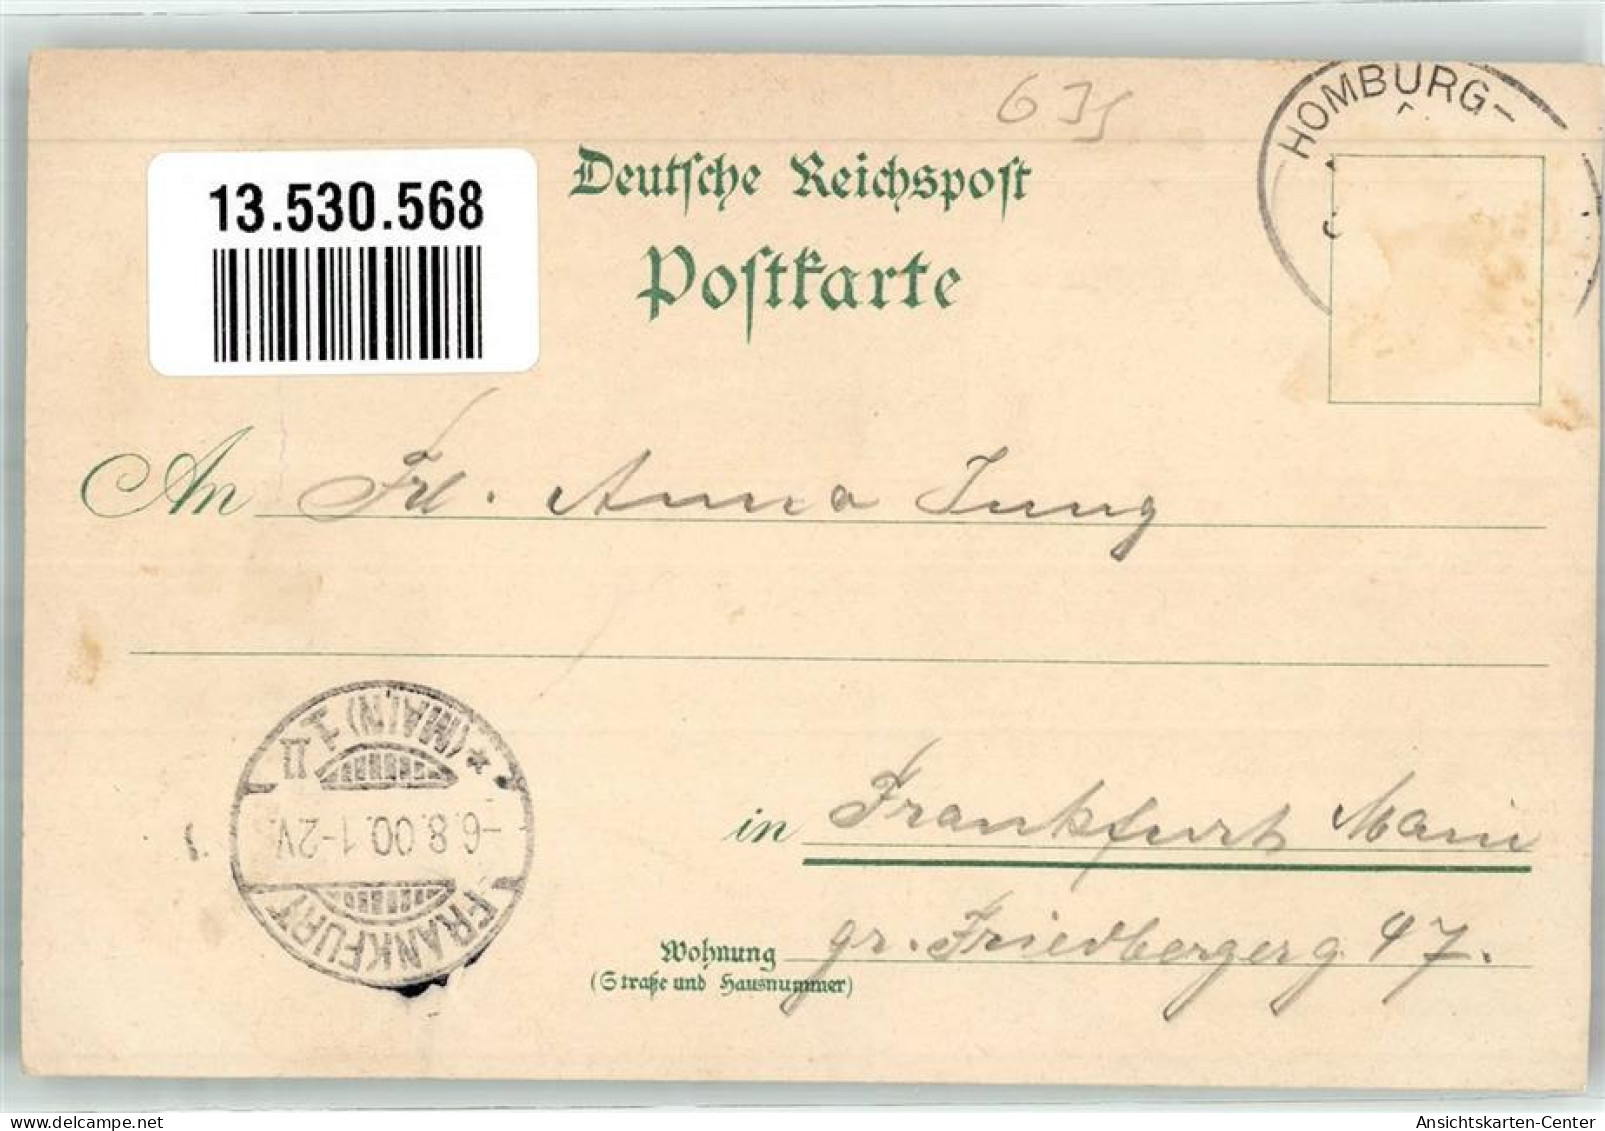 635
HOMBURG-
13.530.568
Deutsche Reichspost
Postkarte
An Frl. Anna Jung
* (MAIN) 1 II
-6.8.00.1-2V.
FRANKFURT
in Frankfurt Main
Wohnung gr. Friedbergerg 47.
(Straße und Hausnummer)
Ansichtskarten-Center